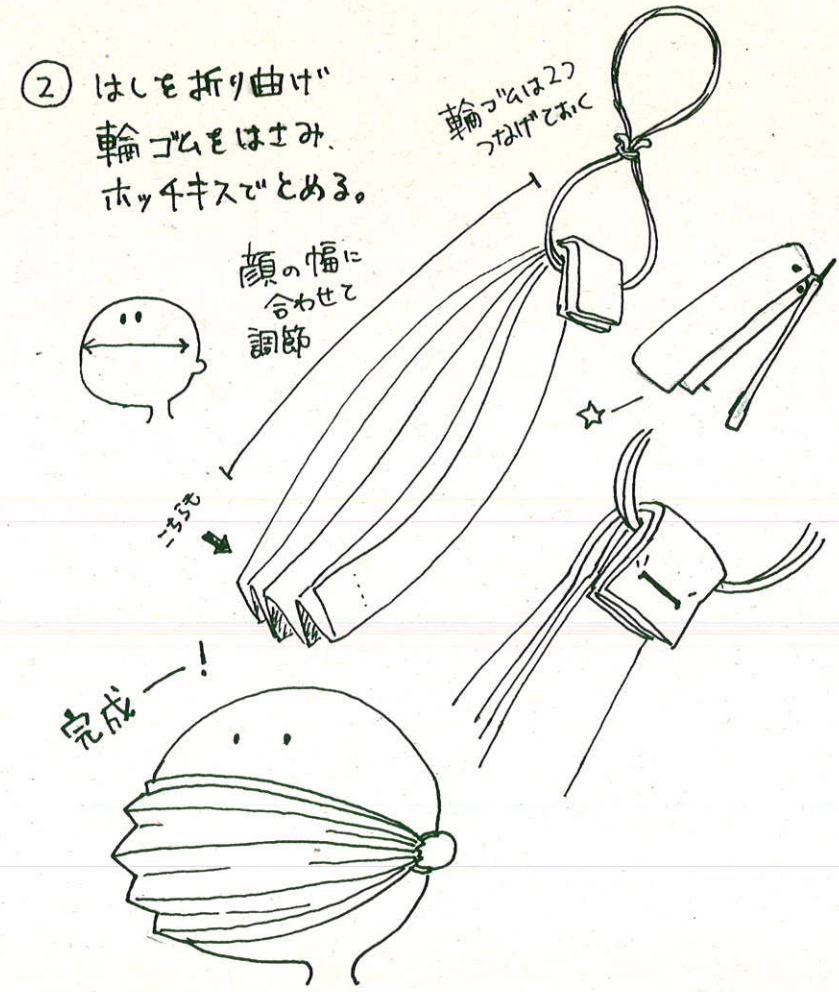 ② はしを折り曲げ
輪ゴムをはさみ、
ホッチキスでとめる。
輪ゴムは2つ
つなげておく
顔の幅に
合わせて
調節
こちらも
完成ー!